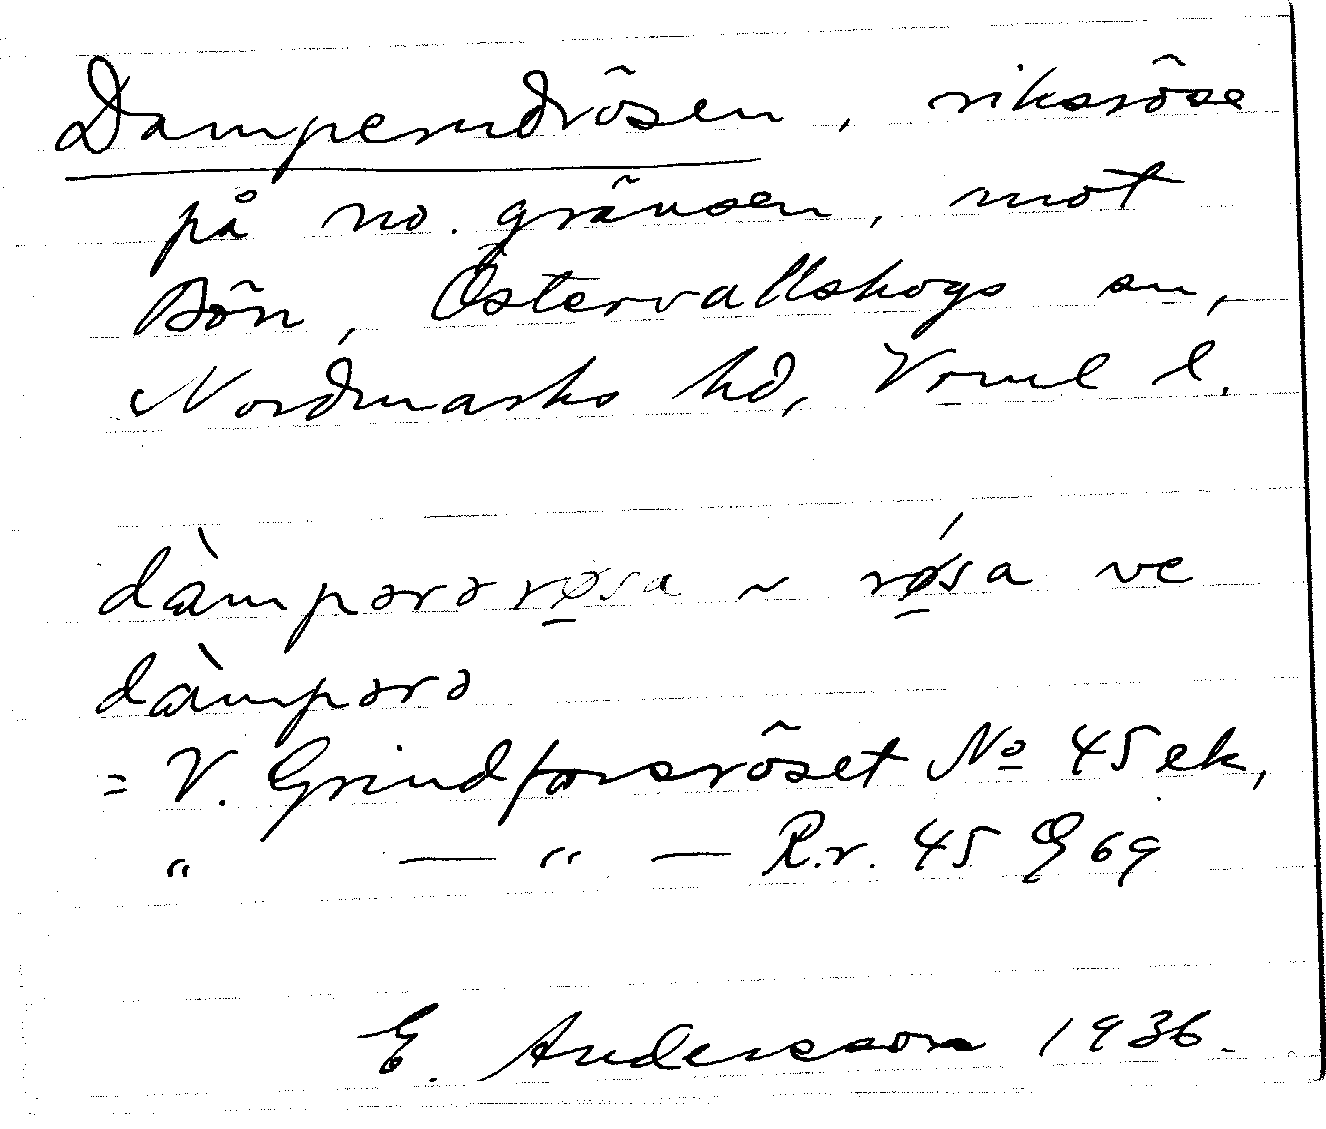 Damperudrösen, riksröse
på no. gränsen, mot
Bön, Östervallskogs sn,
Nordmarks hd, Vrml l.
dàmpərərø̱sa ~ rǿ̱sa ve
dàmpərə
= V. Grindforsröset No 45 ek,
" — " — R.r. 45 E 69
E. Andersson 1936.